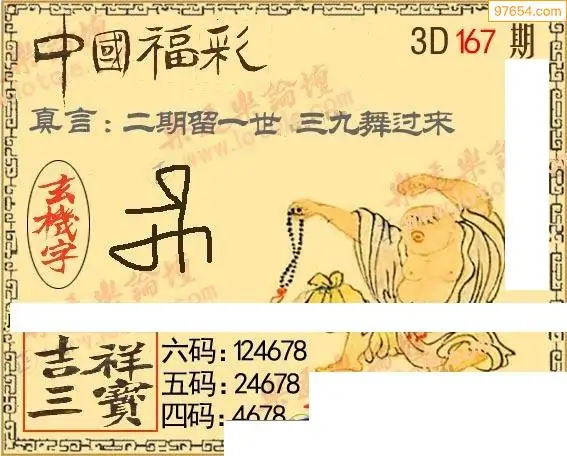 97654.com
中國福彩
3D 167 期
真言：二期留一世 三九舞过来
玄機字
吉祥三寶
六码:124678
五码:24678
四码:4678